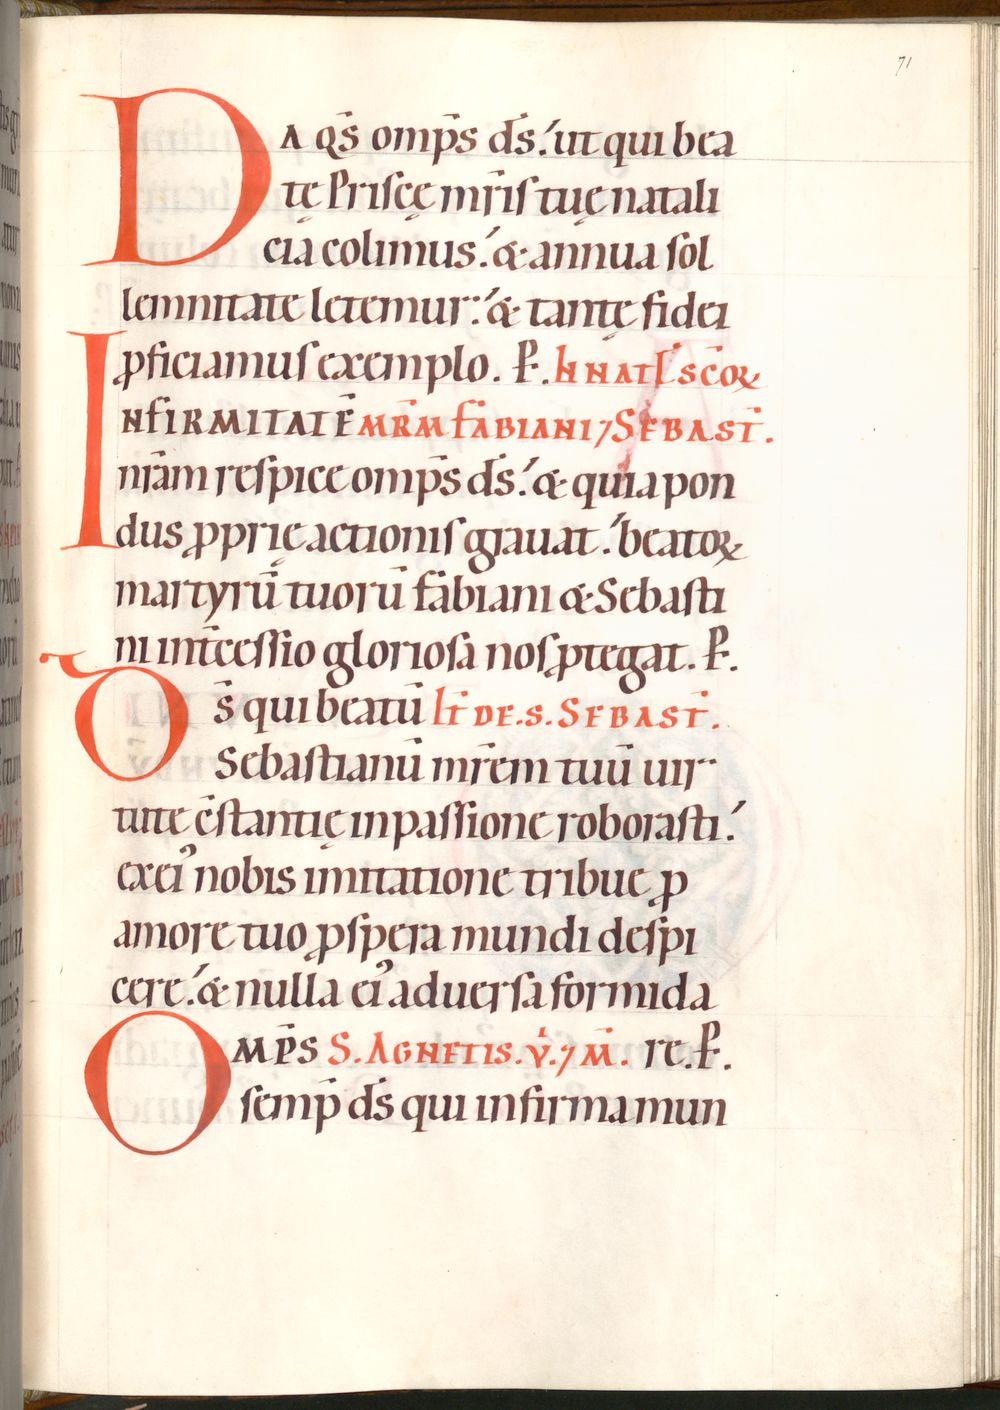 71
DA QS̄ omp̄s ds̄. ut qui bea
tę Priscę mr̄is tuę natali
cia colimus. & annua sol
lemnitate letemur: & tantę fidei
ꝓficiamus exemplo. P̄. IN NAT̄ SC̄OꝜ
INFIRMITATĒ MR̄M FABIANI ⁊ SEBAST̄.
nr̄am respice omp̄s ds̄. & quia pon
dus ꝓprię actionis grauat. beatoꝝ
martyrū tuorū fabiani & Sebasti
ni int̄cessio gloriosa nos ꝓtegat. P̄.
DS̄ qui beatū IT̄ DE. S. SEBAST̄.
Sebastianū mr̄em tuū uir
tute c̄stantię in passione roborasti.
ex ei᾽ nobis imitatione tribue ꝓ
amore tuo ꝓspera mundi despi
cere. & nulla ei᾽ aduersa formida
OMP̄S S. AGNETIS. V̄. ⁊ M̄. re. P̄.
semp̄ ds̄ qui infirma mun